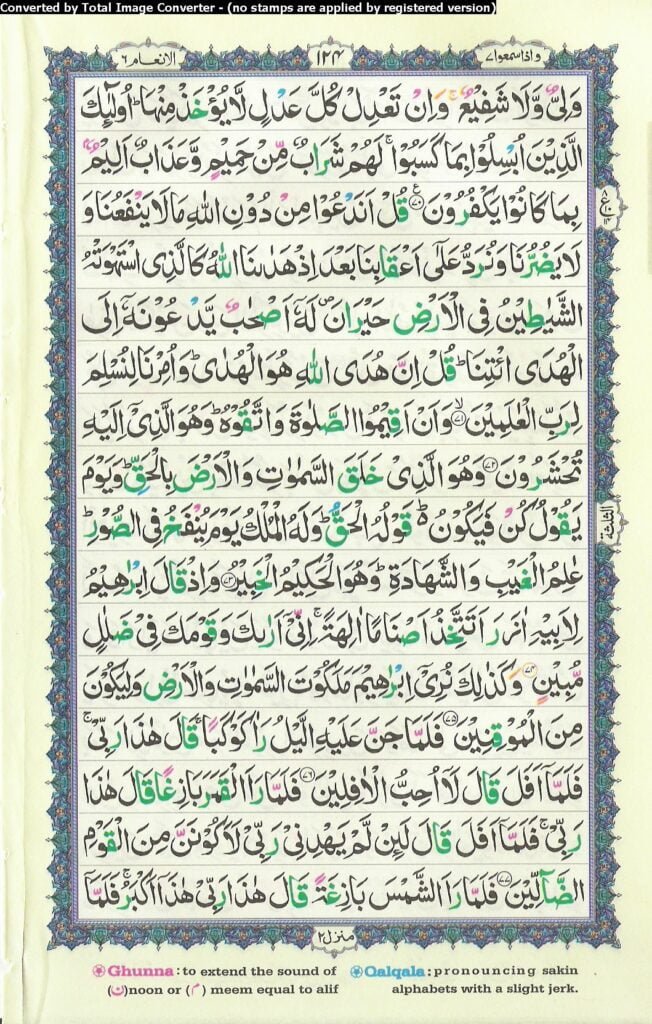 Converted by Total Image Converter - (no stamps are applied by registered version)
واذاسمعوا٧ ١٢٤ الانعام٦
وَلِيٌّ وَّلَا شَفِيْعٌ ۚ وَاِنْ تَعْدِلْ كُلَّ عَدْلٍ لَّا يُؤْخَذْ مِنْهَا ؕ اُولٰٓئِكَ
الَّذِيْنَ اُبْسِلُوْا بِمَا كَسَبُوْا ۚ لَهُمْ شَرَابٌ مِّنْ حَمِيْمٍ وَّعَذَابٌ اَلِيْمٌۢ
بِمَا كَانُوْا يَكْفُرُوْنَ ﴿٧٠﴾ قُلْ اَنَدْعُوْا مِنْ دُوْنِ اللّٰهِ مَا لَا يَنْفَعُنَا وَ
لَا يَضُرُّنَا وَنُرَدُّ عَلٰٓى اَعْقَابِنَا بَعْدَ اِذْ هَدٰىنَا اللّٰهُ كَالَّذِى اسْتَهْوَتْهُ
الشَّيٰطِيْنُ فِى الْاَرْضِ حَيْرَانَ ۪ لَهٗۤ اَصْحٰبٌ يَّدْعُوْنَهٗۤ اِلَى
الْهُدَى ائْتِنَا ؕ قُلْ اِنَّ هُدَى اللّٰهِ هُوَ الْهُدٰى ؕ وَاُمِرْنَا لِنُسْلِمَ
لِرَبِّ الْعٰلَمِيْنَ ۙ﴿٧١﴾ وَاَنْ اَقِيْمُوا الصَّلٰوةَ وَاتَّقُوْهُ ؕ وَهُوَ الَّذِىْۤ اِلَيْهِ
تُحْشَرُوْنَ ﴿٧٢﴾ وَهُوَ الَّذِىْ خَلَقَ السَّمٰوٰتِ وَالْاَرْضَ بِالْحَقِّ ؕ وَيَوْمَ
يَقُوْلُ كُنْ فَيَكُوْنُ ۬ؕ قَوْلُهُ الْحَقُّ ؕ وَلَهُ الْمُلْكُ يَوْمَ يُنْفَخُ فِى الصُّوْرِ ؕ
عٰلِمُ الْغَيْبِ وَالشَّهَادَةِ ؕ وَهُوَ الْحَكِيْمُ الْخَبِيْرُ ﴿٧٣﴾ وَاِذْ قَالَ اِبْرٰهِيْمُ
لِاَبِيْهِ اٰزَرَ اَتَتَّخِذُ اَصْنَامًا اٰلِهَةً ۚ اِنِّىْۤ اَرٰىكَ وَقَوْمَكَ فِىْ ضَلٰلٍ
مُّبِيْنٍ ﴿٧٤﴾ وَكَذٰلِكَ نُرِىْۤ اِبْرٰهِيْمَ مَلَكُوْتَ السَّمٰوٰتِ وَالْاَرْضِ وَلِيَكُوْنَ
مِنَ الْمُوْقِنِيْنَ ﴿٧٥﴾ فَلَمَّا جَنَّ عَلَيْهِ الَّيْلُ رَاٰ كَوْكَبًا ۚ قَالَ هٰذَا رَبِّىْ ۚ
فَلَمَّاۤ اَفَلَ قَالَ لَاۤ اُحِبُّ الْاٰفِلِيْنَ ﴿٧٦﴾ فَلَمَّا رَاَ الْقَمَرَ بَازِغًا قَالَ هٰذَا
رَبِّىْ ۚ فَلَمَّاۤ اَفَلَ قَالَ لَئِنْ لَّمْ يَهْدِنِىْ رَبِّىْ لَاَكُوْنَنَّ مِنَ الْقَوْمِ
الضَّآلِّيْنَ ﴿٧٧﴾ فَلَمَّا رَاَ الشَّمْسَ بَازِغَةً قَالَ هٰذَا رَبِّىْ هٰذَاۤ اَكْبَرُ ۚ فَلَمَّاۤ
الثلثة
منزل٢
Ghunna: to extend the sound of (ن)noon or (م) meem equal to alif
Qalqala: pronouncing sakin alphabets with a slight jerk.